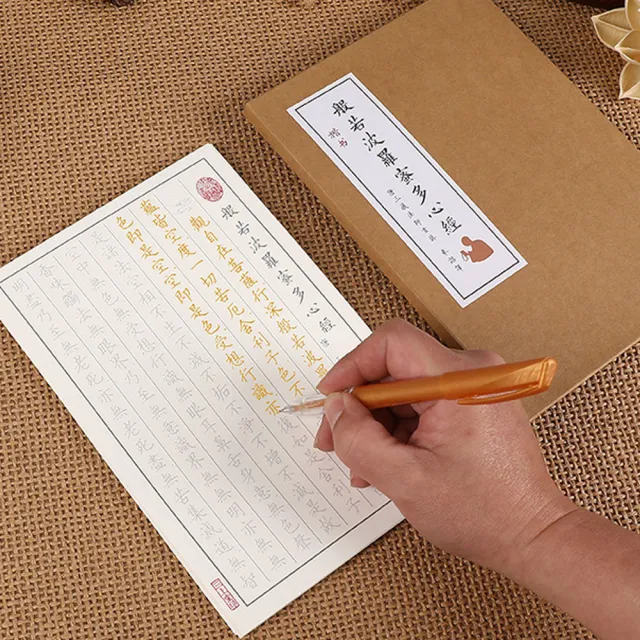 般若波羅蜜多心經
楷书
唐三藏法師玄奘 奉詔譯
般若波羅蜜多心經 唐
觀自在菩薩行深般若波羅
蘊皆空度一切苦厄舍利子色不
色即是空空即是色受想行識亦復如是舍利子
是諸法空相不生不滅不垢不淨不增不減是故
空中無色無受想行識無眼耳鼻舌身意無色聲
香味觸法無眼界乃至無意識界無無明亦無無
明盡乃至無老死亦無老死盡無苦集滅道無智